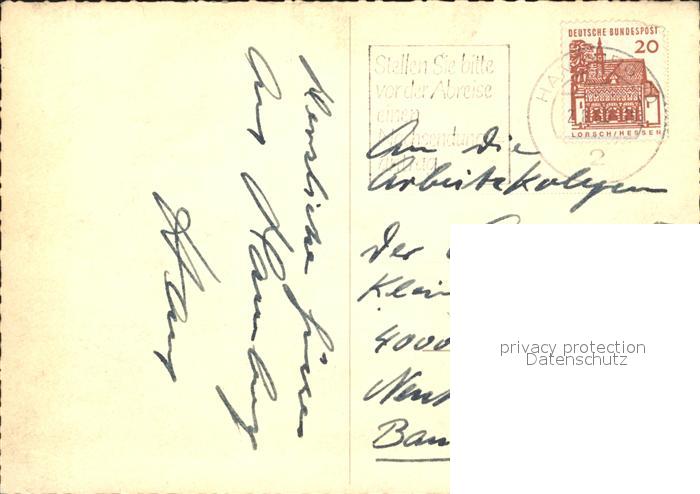 Herzliche Grüsse
aus Hamburg
Hans
Stellen Sie bitte
vor der Abreise
einen
Nachsendungs
DEUTSCHE BUNDESPOST
20
LORSCH/HESSEN
2
An die
Arbeitskolegen
der
Klein
4000
Neu
Ban
privacy protection
Datenschutz